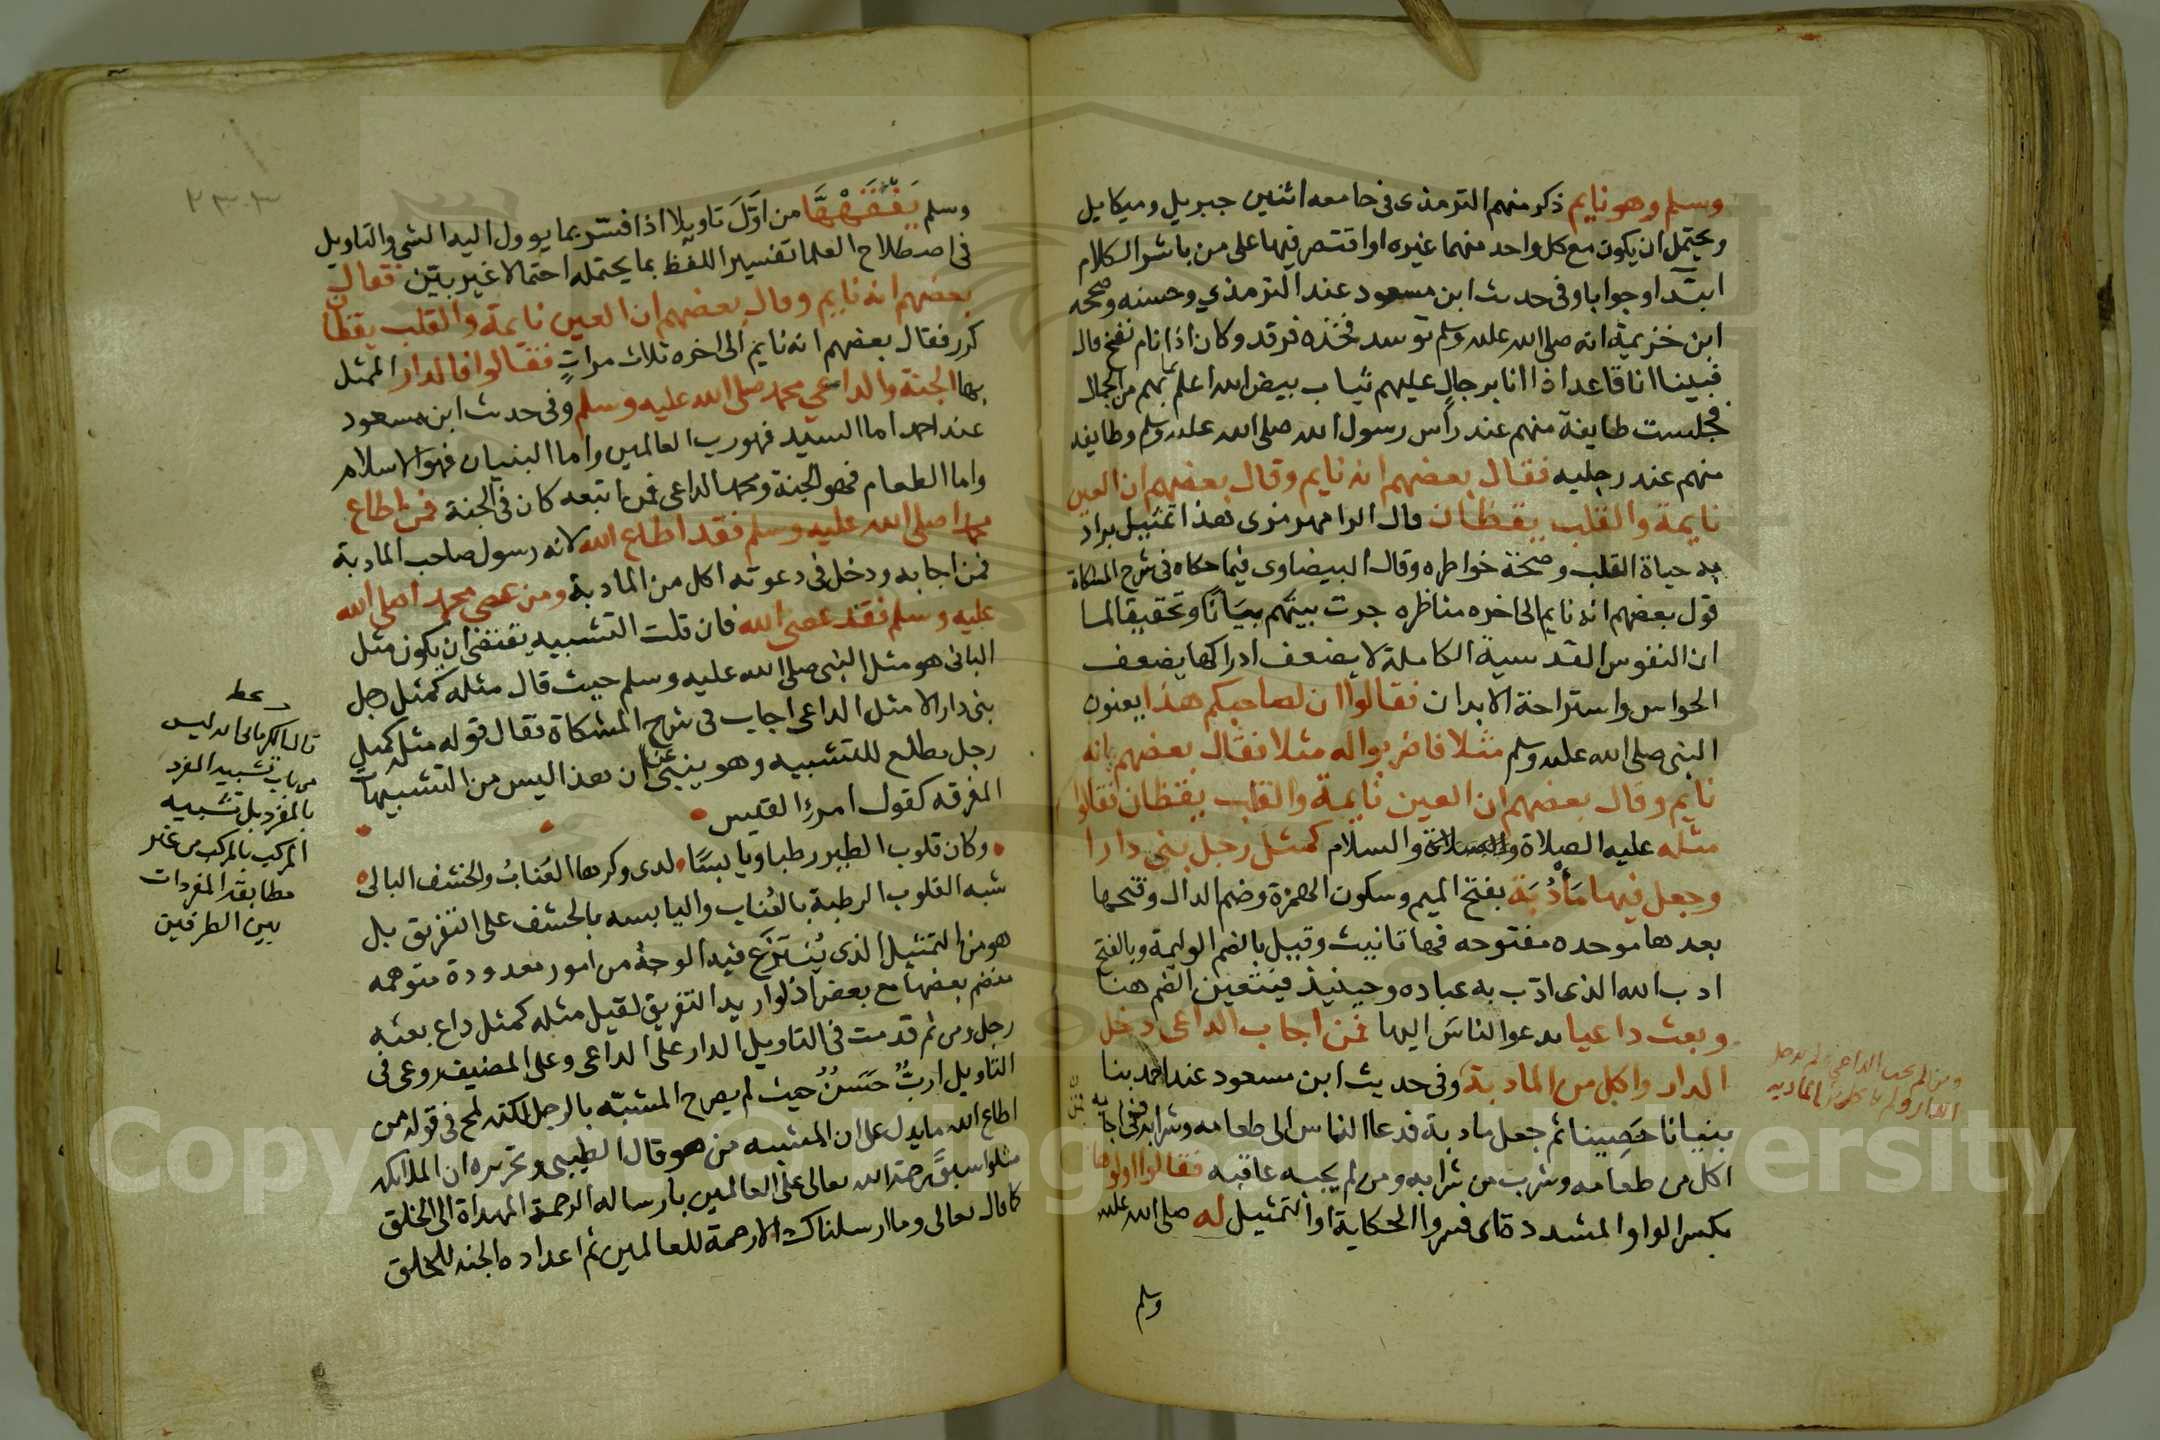 وسلم وهو نايم ذكر منهم الترمذى فى جامعه اثنين جبريل وميكايل
ويحتمل ان يكون مع كل واحد منهما غيره او اقتصر فيها على من باشر الكلام
ابتدا او جوابا وفى حديث ابن مسعود عند الترمذي وحسنه وصححه
ابن خزيمة انه صلى الله عليه وسلم توسد فخذه فرقد وكان اذا نام نفخ قال
فبينا انا قاعد اذا انا برجال عليهم ثياب بيض الله اعلم بما بهم من الجمال
فجلست طايفة منهم عند راس رسول الله صلى الله عليه وسلم وطايفه
منهم عند رجليه فقال بعضهم انه نايم وقال بعضهم ان العين
نايمة والقلب يقظان قال الرامهرمزى هذا تمثيل يراد
به حياة القلب وصحة خواطره وقال البيضاوى فيما حكاه فى شرح المشكاة
قول بعضهم انه نايم الى اخره مناظره جرت بينهم بيانا وتحقيقا لما
ان النفوس القدسية الكاملة لا يضعف ادراكها بضعف
الحواس واستراحة الابدان فقالوا ان لصاحبكم هذا يعنون
النبى صلى الله عليه وسلم مثلا فاضربوا له مثلا فقال بعضهم انه
نايم وقال بعضهم ان العين نايمة والقلب يقظان فقالوا
مثله عليه الصلاة والسلام كمثل رجل بنى دارا
وجعل فيها مَأْدُبَة بفتح الميم وسكون الهمزة وضم الدال وفتحها
بعدها موحده مفتوحه فها تانيث وقيل بالضم الوليمة وبالفتح
ادب الله الذى ادّب به عباده وحينيذ فيتعين الضم هنا
وبعث داعيا يدعو الناس اليها فمن اجاب الداعى دخل
الدار واكل من المادبة وفى حديث ابن مسعود عند احمد بنا
بنيانا حَصِينا ثم جعل مادبة فدعا الناس الى طعامه وشرابه فمن اجابه
اكل من طعامه وشرب من شرابه ومن لم يجبه عاقبه فقالوا اولوها
بكسر الواو المشددة اى فسروا الحكاية او التمثيل له صلى الله عليه
وسلم
ومن لم يجب الداعي لم يدخل
الدار ولم ياكل من المادبة
وسلم يَفْقَهْهَا من اوّلَ تاويلا اذا فسّر بما يوول اليه الشي والتاويل
فى اصطلاح العلما تفسير اللفظ بما يحتمله احتمالا غير بيّن فقال
بعضهم انه نايم وقال بعضهم ان العين نايمة والقلب يقظان
كرر فقال بعضهم انه نايم الى اخره ثلاث مرات فقالوا فالدار الممثل
بها الجنة والداعي محمد صلى الله عليه وسلم وفى حديث ابن مسعود
عند احمد اما السيد فهو رب العالمين واما البنيان فهو الاسلام
واما الطعام فهو الجنة ومحمد الداعى فمن اتبعه كان فى الجنة فمن اطاع
محمدا صلى الله عليه وسلم فقد اطاع الله لانه رسول صاحب المادبة
فمن اجابه ودخل فى دعوته اكل من المادبة ومن عصى محمدا صلى الله
عليه وسلم فقد عصى الله فان قلت التشبيه يقتضى ان يكون مثل
البانى هو مثل النبى صلى الله عليه وسلم حيث قال مثله كمثل رجل
بنى دارا لا مثل الداعى اجاب فى شرح المشكاة فقال قوله مثله كمثل
رجل مطلع للتشبيه وهو ينبى عن ان هذا ليس من التشبيهات
المفرقه كقول امرئ القيس
وكان قلوب الطير رطبا ويابسًا لدى وكرها العُنابُ والحشف البالى
شبه القلوب الرطبة بالعُناب واليابسه بالحشف على التفريق بل
هو من التمثيل الذى يُنْتَزَع فيه الوجهُ من امور معدودة متوهمه
منضم بعضها مع بعض اذ لو اريد التفريق لقيل مثله كمثل داع بعثه
رجل ومن ثم قدمت فى التاويل الدار على الداعى وعلى المضيف وروعى فى
التاويل ادبٌ حَسَنٌ حيث لم يصرح المشبّه بالرجل لكنه لمح فى قوله من
اطاع الله ما يدل على ان المشبه من هو قال الطيبى وتحريره ان الملائكه
مثلوا سبق رحمة الله تعالى على العالمين بارساله الرحمة المهداة الى الخلق
كما قال تعالى وما ارسلناك الا رحمة للعالمين ثم اعداده الجنة للخلق
قال الكرمانى ليس
من باب تشبيه المفرد
بالمفرد بل تشبيه
المركب بالمركب من غير
مطابقة المفردات
بين الطرفين
٢٣٠٣
Copyright © King Saud University